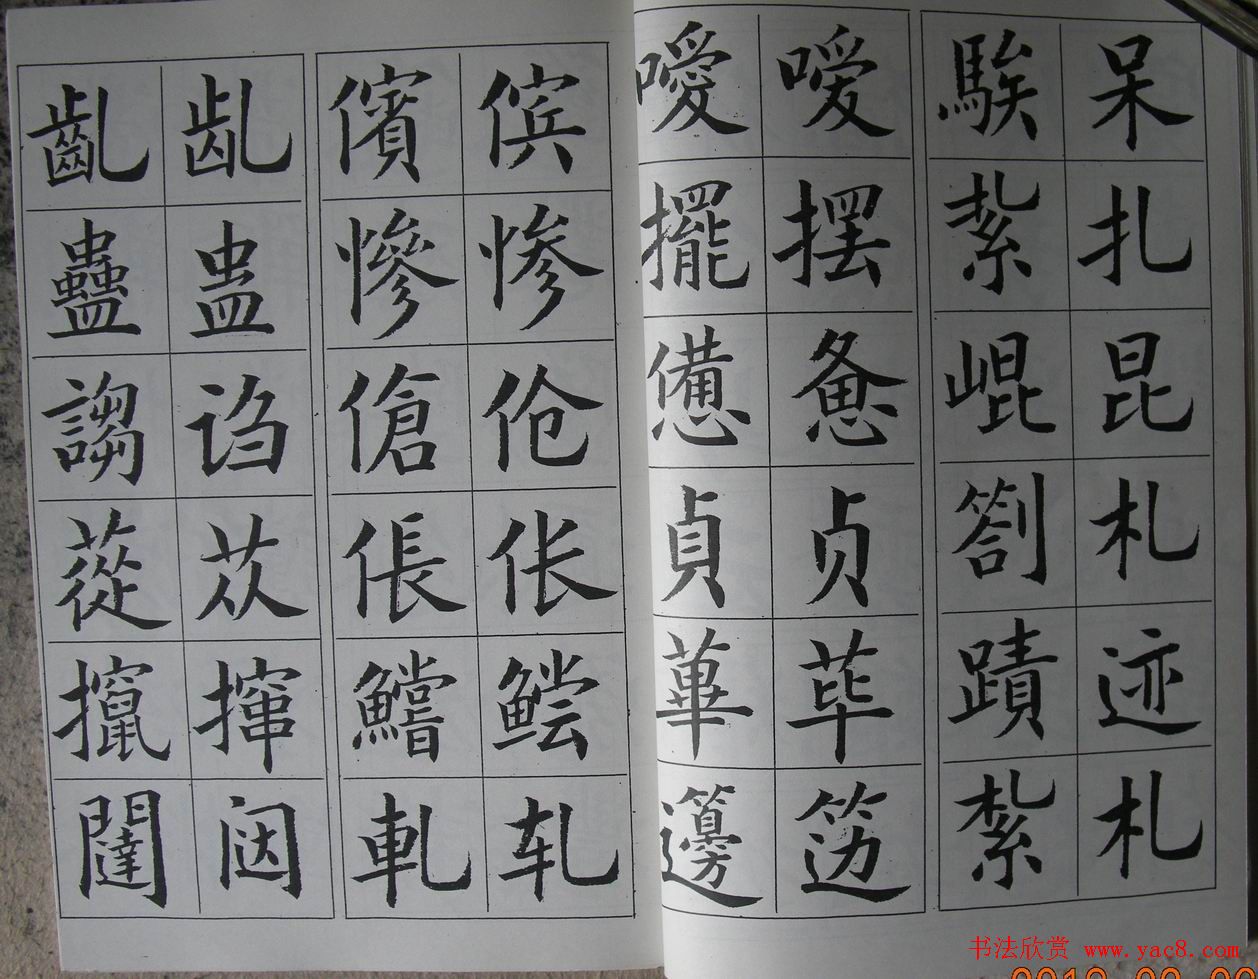 呆扎昆札迹札
騃紮崐劄蹟紮
嗳摆惫贞荜笾
噯擺憊貞蓽籩
傧惨伧伥鲿轧
儐慘傖倀鱨軋
龀蛊诌苁撺闼
齔蠱謅蓯攛闥
书法欣赏 www.yac8.com